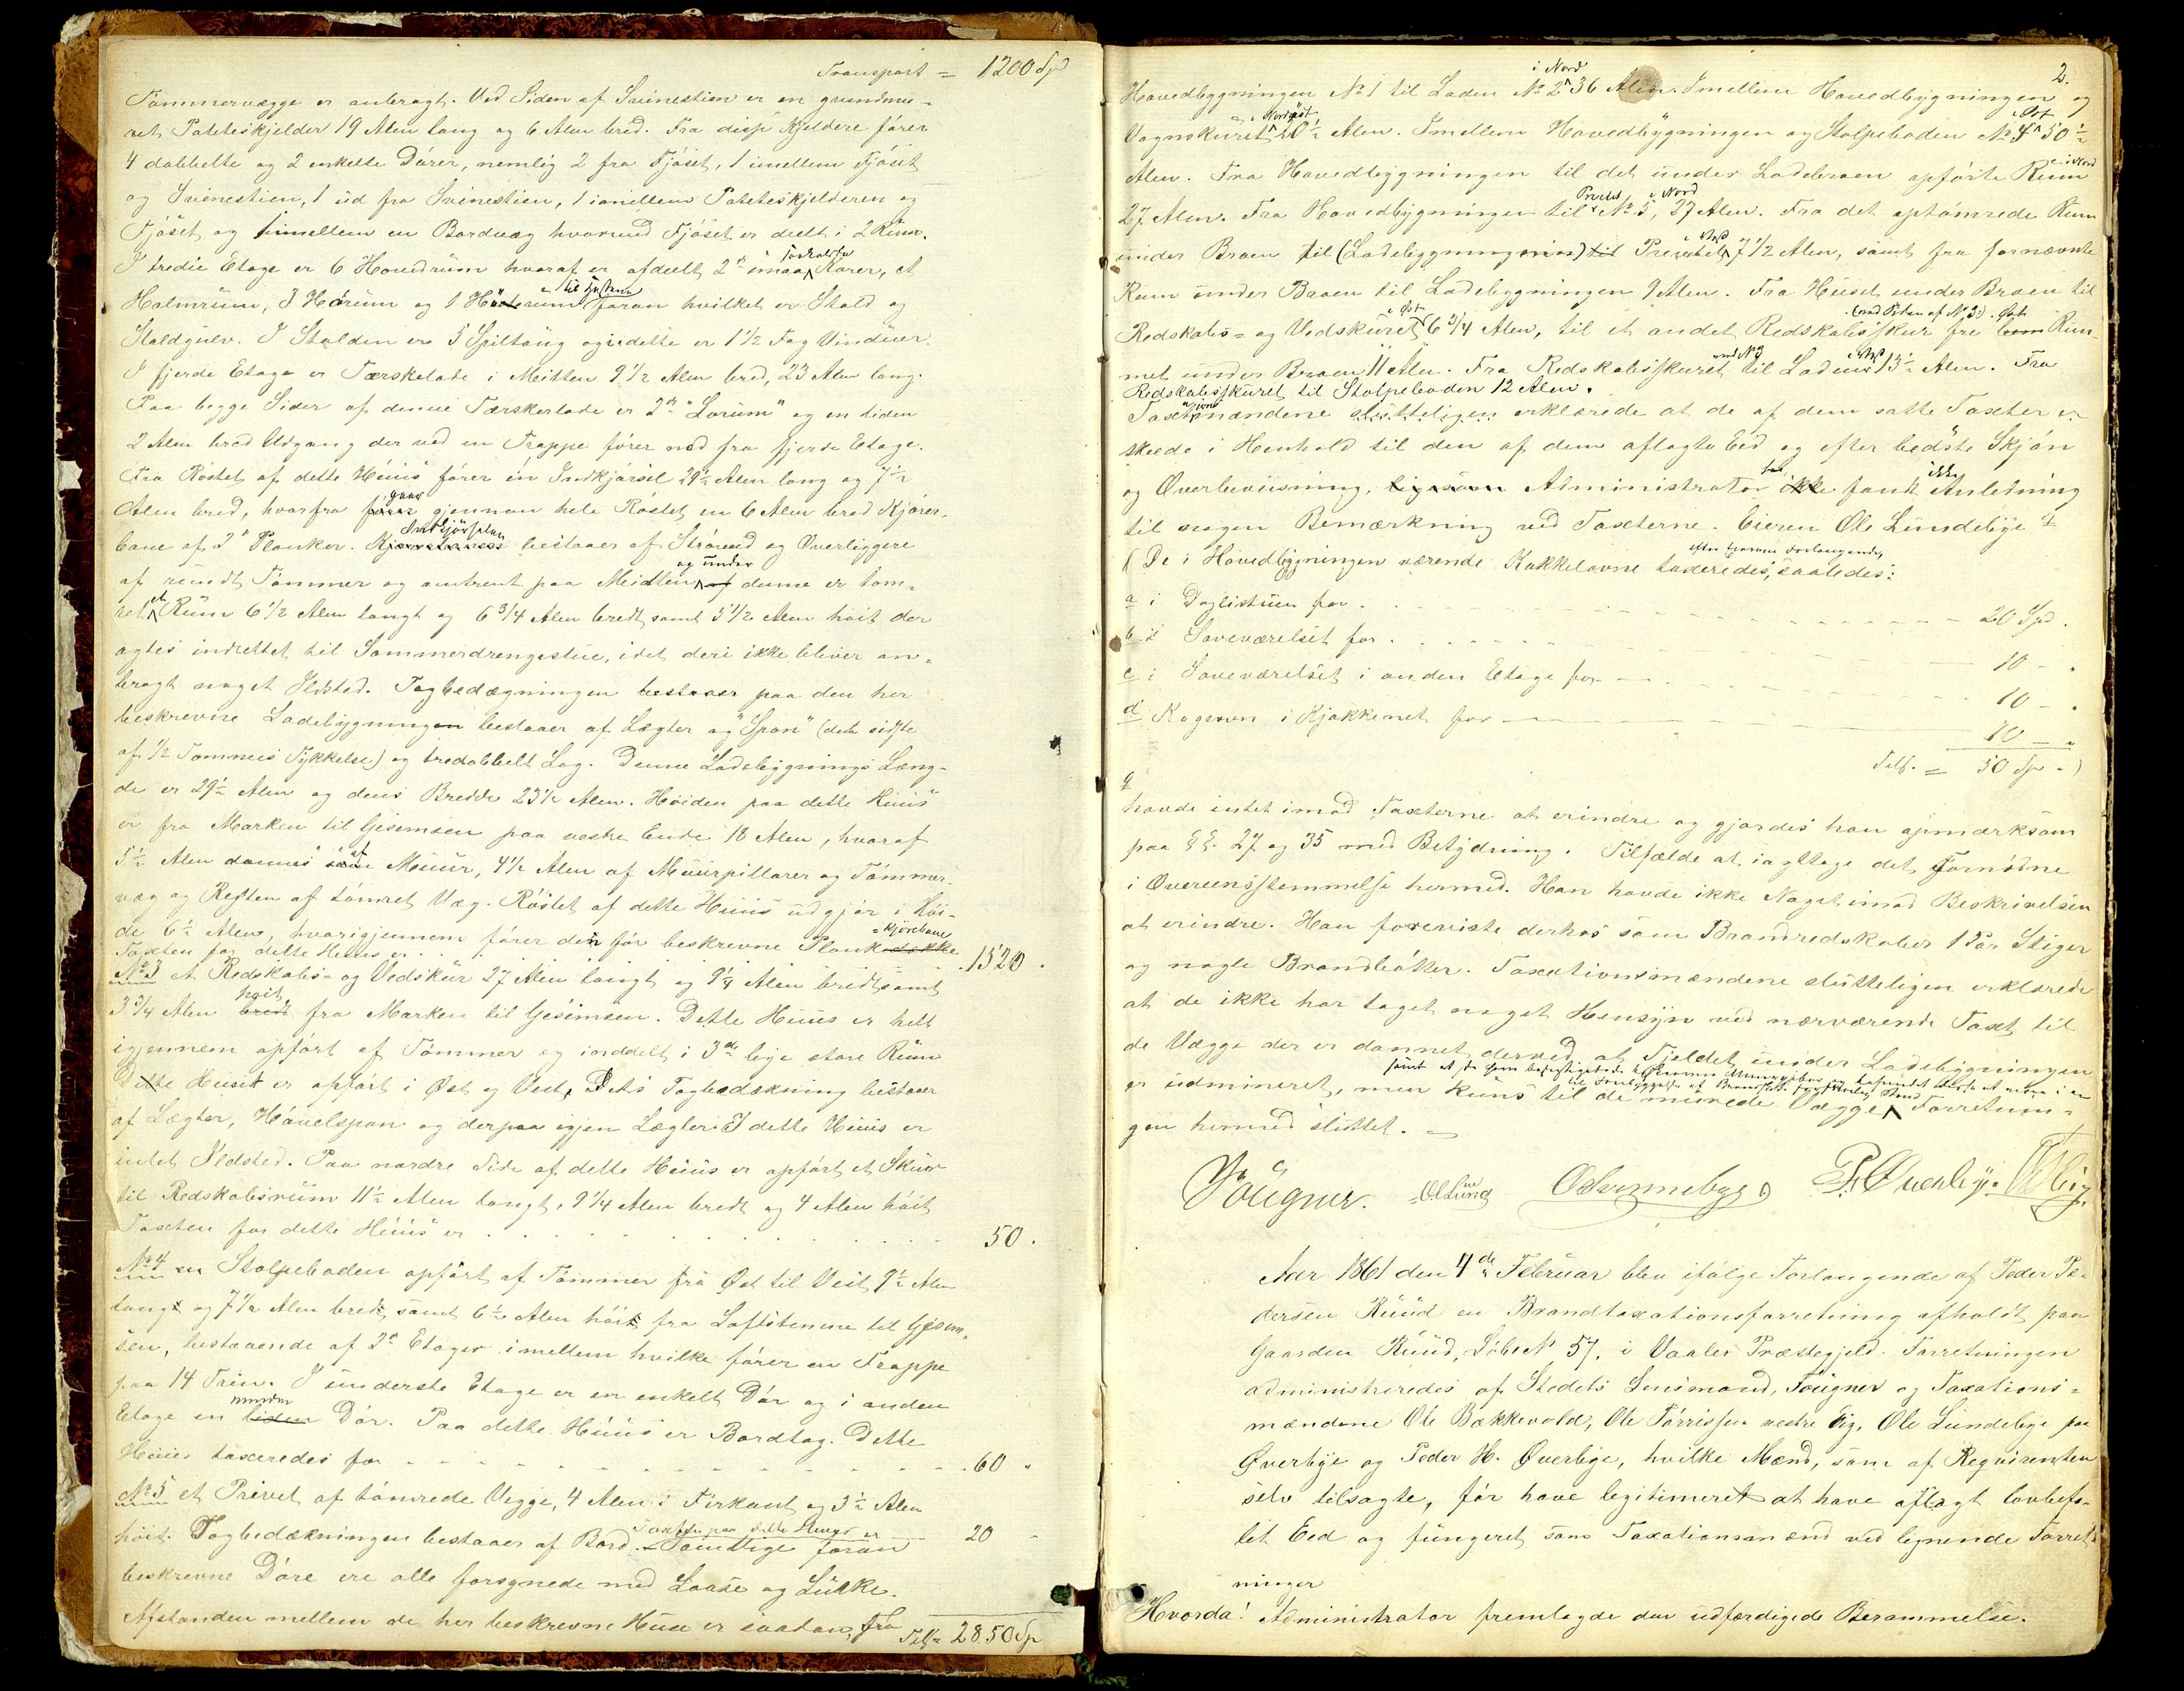 Transport = 1200 Spd
Tømmervægge er anbragt. Ved Siden af Svinestien er en grundmu-
ret Poteteskjelder 19 Alen lang og 6 Alen bred. Fra disse Kjeldere fører
4 dobbelte og 2 enkelte Døre, nemlig 2 fra Fjøset, 1 imellem Fjøset
og Svinestien, 1 ud fra Svinestien, 1 imellem Poteteskjelderen og
Fjøset og imellem en Bordvæg hvorved Fjøset er deelt i 2 Rum.
I tredie Etage er 6 Hovedrum hvoraf er afdeelt 2de smaa Karer, et
Halmrum, 3 Hørum og 1 rum foran hvilket er Stald og
Staldgulv. I Stalden er 5 Spiltaug og i dette er 1 1/2 Fag Vinduer.
I fjerde Etage er Tærskelade i Mitten 9 1/2 Alen bred, 23 Alen lang.
Paa begge Sider af denne Tærskelade er 2de "Lorum" og en liden
2 Alen bred Udgang der ved en Trappe fører ned fra fjerde Etage.
Fra Røstet af dette Huus fører en Indkjørsel 29 1/2 Alen lang og 7 1/2
Alen bred, hvorfra gaar gjennem hele Røstet en 6 Alen bred Kjøre-
bane af 2" Planker. Indkjørselen bestaaer af Strøved og Overliggere
af rundt Tømmer og omtrent paa Midten og under denne er tøm-
ret et Rum 6 1/2 Alen langt og 6 3/4 Alen bredt samt 5 1/2 Alen høit der
agtes indrettet til Sommerdrengestue, idet deri ikke bliver an-
bragt noget Ildsted. Tagbedægningen bestaaer paa den her
beskrevne Ladebygningen bestaaer af Lægter og "Spon" (det sidste
af 1/2 Tommes Tykkelse) og tredobbelt Lag. Denne Ladebygnings Læng-
de er 29 1/2 Alen og dens Bredde 23 1/2 Alen. Høiden paa dette Huus
er fra Marken til Gesimsen paa vestre Ende 18 Alen, hvoraf
5 1/2 Alen dannes af Muur, 4 1/2 Alen af Muurpillarer og Tømmer-
væg og Resten af tømret Væg. Røstet af dette Huus udgjør i Høi-
de 6 1/2 Alen, hvorigjennem fører den før beskrevne Plankekjørebane
Taxten for dette Huus er . . . 1520.
No 3 et Redskabs- og Vedskur 27 Alen langt og 9 1/4 Alen bredt samt
3 3/4 Alen høit fra Marken til Gesimsen. Dette Huus er helt
igjennem opført af Tømmer og inddelt i 3de lige store Rum
Dette Huset er opført i Øst og Vest, Dets Tagbedækning bestaaer
af Lægter, Høvelspon og derpaa igjen Lægter. I dette Huus er
intet Ildsted. Paa nordre Side af dette Huus er opført et Skuur
til Redskabsrum 11 1/2 Alen langt, 9 1/4 Alen bredt og 4 Alen høit
Taxten for dette Huus er . . . 50.
No 4 en Stolpeboden opført af Tømmer fra Øst til Vest, 9 1/2 Alen
lang og 7 1/2 Alen bred, samt 6 1/2 Alen høi fra Loftstenene til Gesim-
sen, bestaaende af 2de Etager imellem hvilke fører en Trappe
paa 14 Trin. I underste Etage er en enkelt Dør og i anden
Etage en mindre Dør. Paa dette Huus er Bordtag. Dette
Huus taxeredes for - - - 60 "
No 5 et Privet af tømrede Vegge, 4 Alen i Firkant og 3 1/2 Alen
høit. Tagbedækningen bestaaer af Bord. Taxten paa dette Huus er 20 "
Samtlige foran
beskrevne Døre ere alle forsynede med Laase og Lukke.
Afstanden mellem de her beskrevne Huse er saadan, fra
Tils = 2850 Sp
2.
Hovedbygningen No 1 til Laden No 2 i Nord 36 Alen. Imellem Hovedbygningen og
Vognskuret i Nordøst 20 1/2 Alen. Imellem Hovedbygningen og Stolpeboden No 4 i Øst 50 1/2
Alen. Fra Hovedbygningen til det under Ladebroen opførte Rum i Nord
27 Alen. Fra Hovedbygningen til Privetet No 5, i Nord 27 Alen. Fra det optømrede Rum
under Broen til (Ladebygningen) Privetet i Vest 7 1/2 Alen, samt fra fornævnte
Rum under Broen til Ladebygningen 9 Alen. Fra Huset under Broen til
Redskabs- og Vedskuret i Øst 6 3/4 Alen, til et andet Redskabsskur (ved Siden af No 3) fra Rum-
met under Broen 11 Alen. Fra Redskabsskuret ved No 3 til Laden i Vest 13 1/2 Alen. Fra
Redskabsskuret til Stolpeboden 12 Alen.
Taxtationsmændene slutteligen erklærede at de af dem satte Taxter er
skeede i Henhold til den af dem aflagte Eed og efter bedste Skjøn
og Overbeviisning. Administrator fandt ikke Anledning
til nogen Bemærkning ved Taxterne. Eieren Ole Lundebye
(De i Hovedbygningen værende Kakkelovne taxeredes, efter Eierens Forlangende, saaledes:
a i Daglistuen for . . . 20 Spd.
b i Soveværelset for . . . 10 - "
c i Soveværelset i anden Etage for - 10 - "
d Kogeovn i Kjøkkenet for - 10 - "
Tils. = 50 Sp ")
havde intet imod Taxterne at erindre og gjordes han opmærksom
paa §§. 27 og 35 med Betydning. Tilfælde at iagttage det Fornødne
i Overensstemmelse hermed. Han havde ikke Noget imod Beskrivelsen
at erindre. Han foreviste derhos som Brandredskaber 1 Par Stiger
og nogle Brandbøtter. Taxationsmændene slutteligen erklærede
at de ikke har taget noget Hensyn ved nærværende Taxt til
de Vægge der er dannet derved at Fjeldet under Ladebygningen
er udmineret, men kuns til de murede Vægge Forretnin-
gen hermed sluttet. -
Fougner. OLund OSvennebye P. Øverbye
Aar 1861 den 4de Februar blev ifølge Forlangende af Peder Pe-
dersen Ruud en Brandtaxationsforretning afholdt paa
Gaarden Ruud, Løbe No 57, i Vaaler Præstegjeld. Forretningen
administreredes af Stedets Lensmand, Fougner og Taxations-
mændene Ole Bækkevold, Ole Tørrissen vestre Eig, Ole Lundebye paa
Øverbye og Peder H. Øverbye, hvilke Mænd, som af Reqvirenten
selv tilsagte, før have legitimeret at have aflagt lovbefa-
let Eed og fungeret som Taxationsmænd ved lignende Forret-
ninger
Hvorda! Administrator fremlagde den udfærdigede Berammelse.